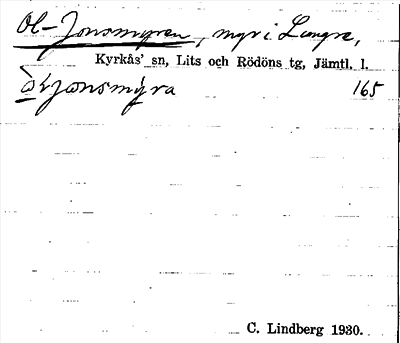 Ol-Jonsmyren, myr i Lungre,
Kyrkås' sn, Lits och Rödöns tg, Jämtl. l.
165
C. Lindberg 1930.